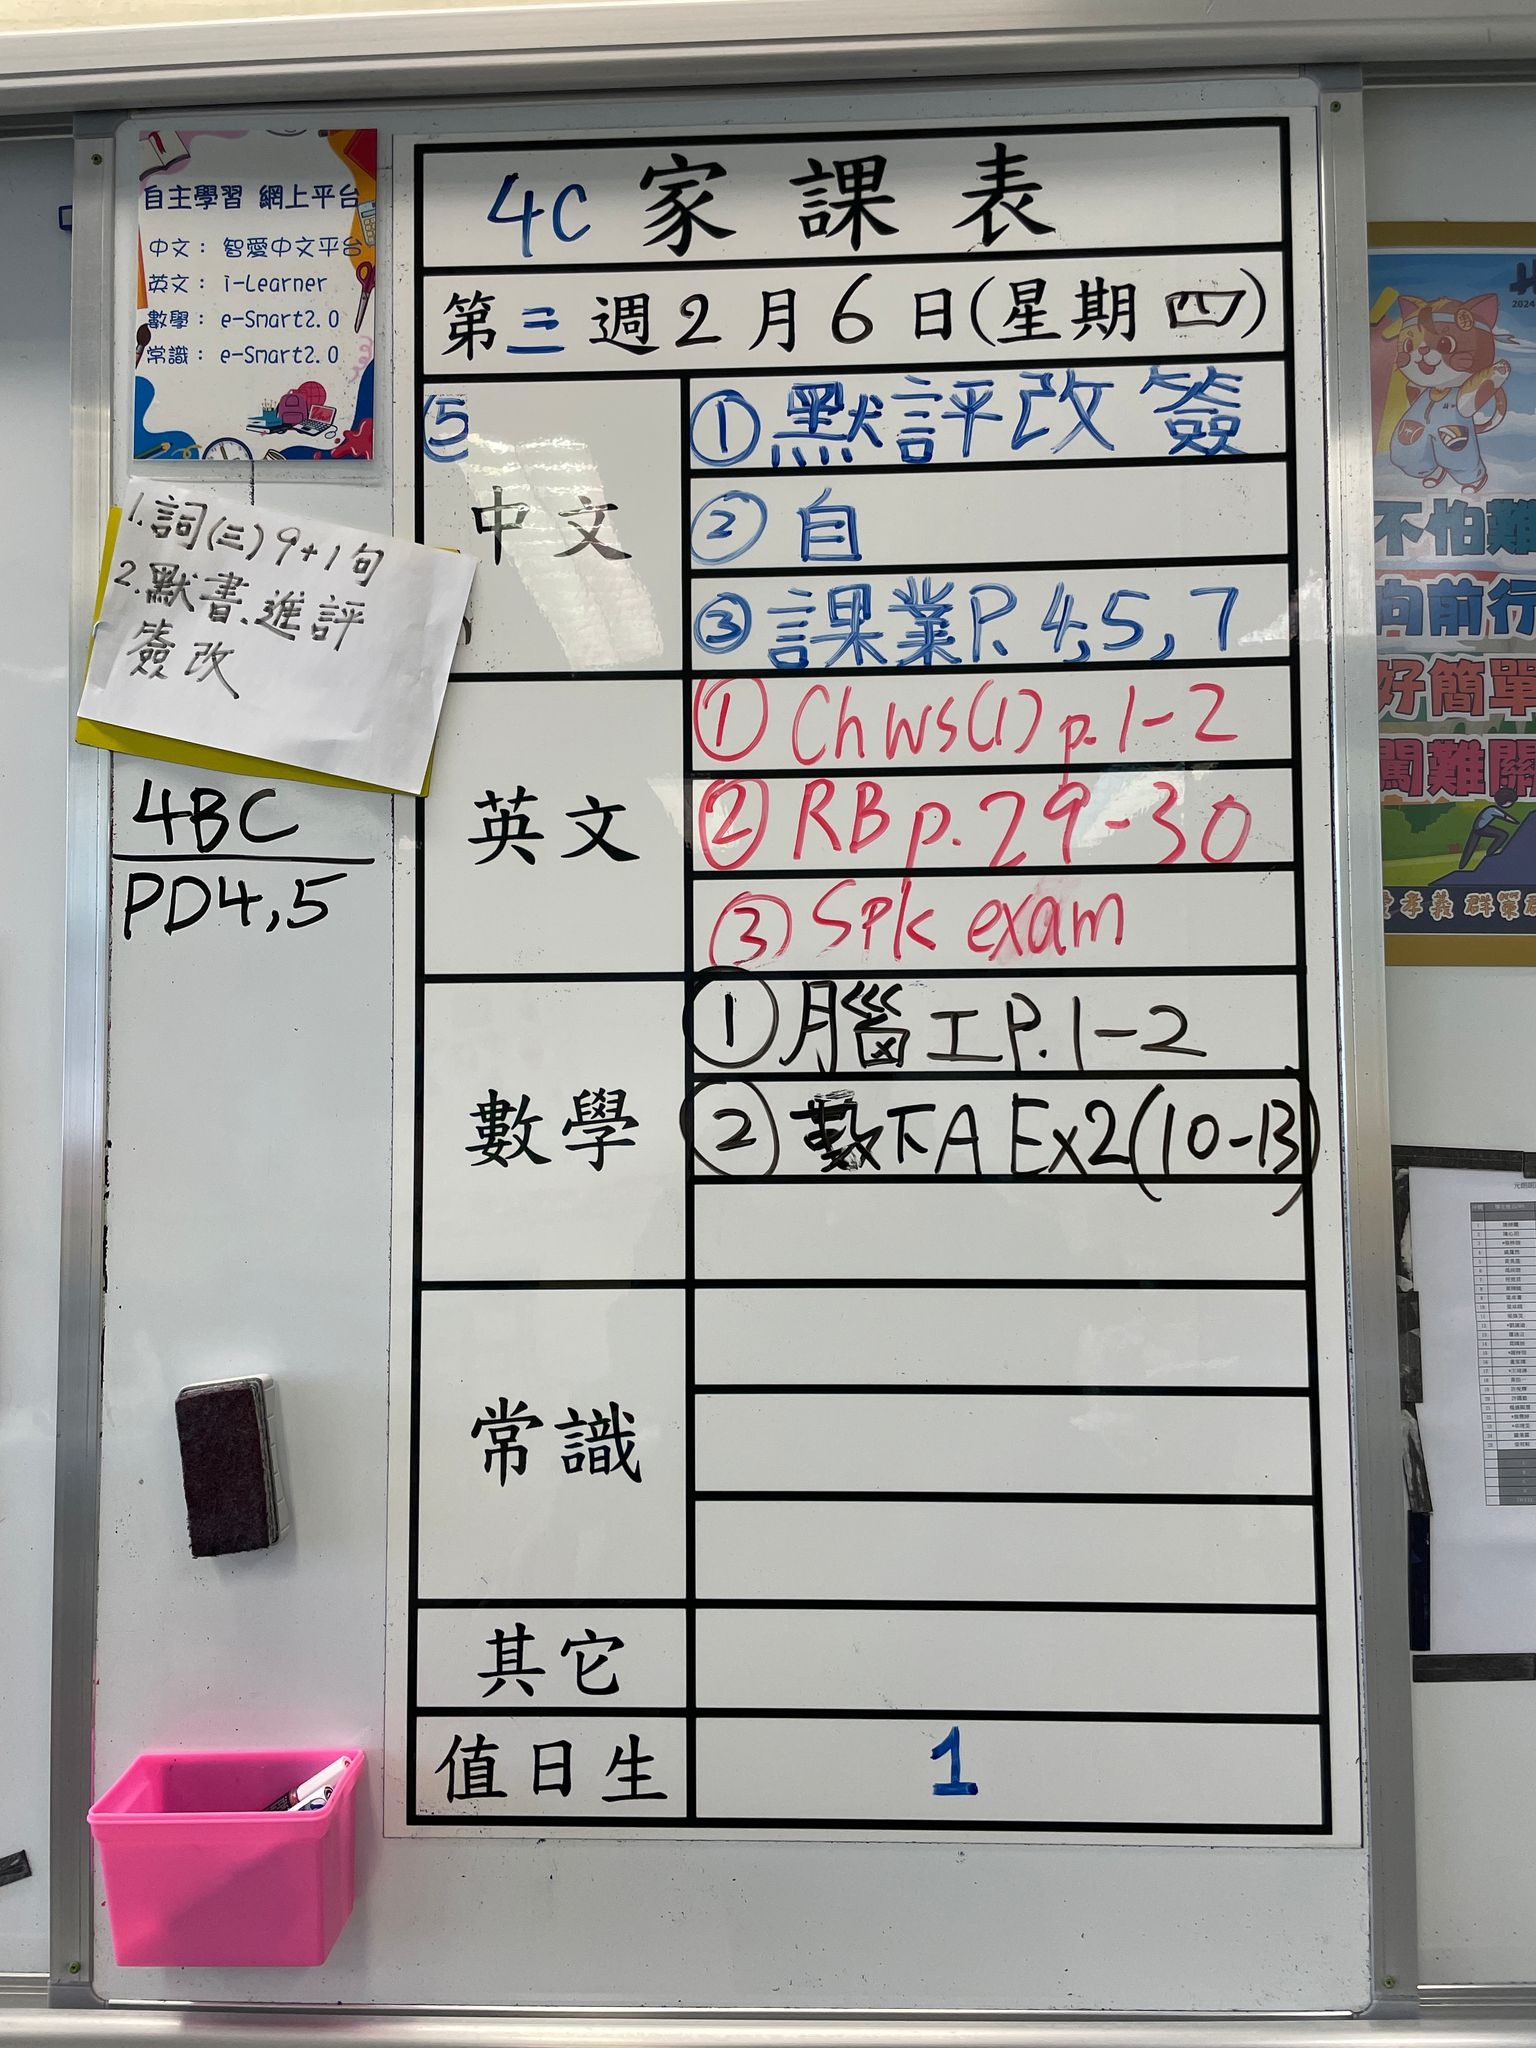 自主學習 網上平台
中文： 智愛中文平台
英文： i-Learner
數學： e-Smart2.0
常識： e-Smart2.0
1.詞(三)9+1句
2.默書、進評
簽改
4BC
PD4,5
4C 家課表
第三週2月6日(星期四)
中文
①默評改簽
②自
③課業P.4,5,7
英文
①Ch ws(1) p.1-2
②RB p.29-30
③Spk exam
數學
①腦工P.1-2
②數下A Ex2(10-13)
常識
其它
值日生
1
2024
不怕難
向前行
好簡單
闖難關
孝義 群策